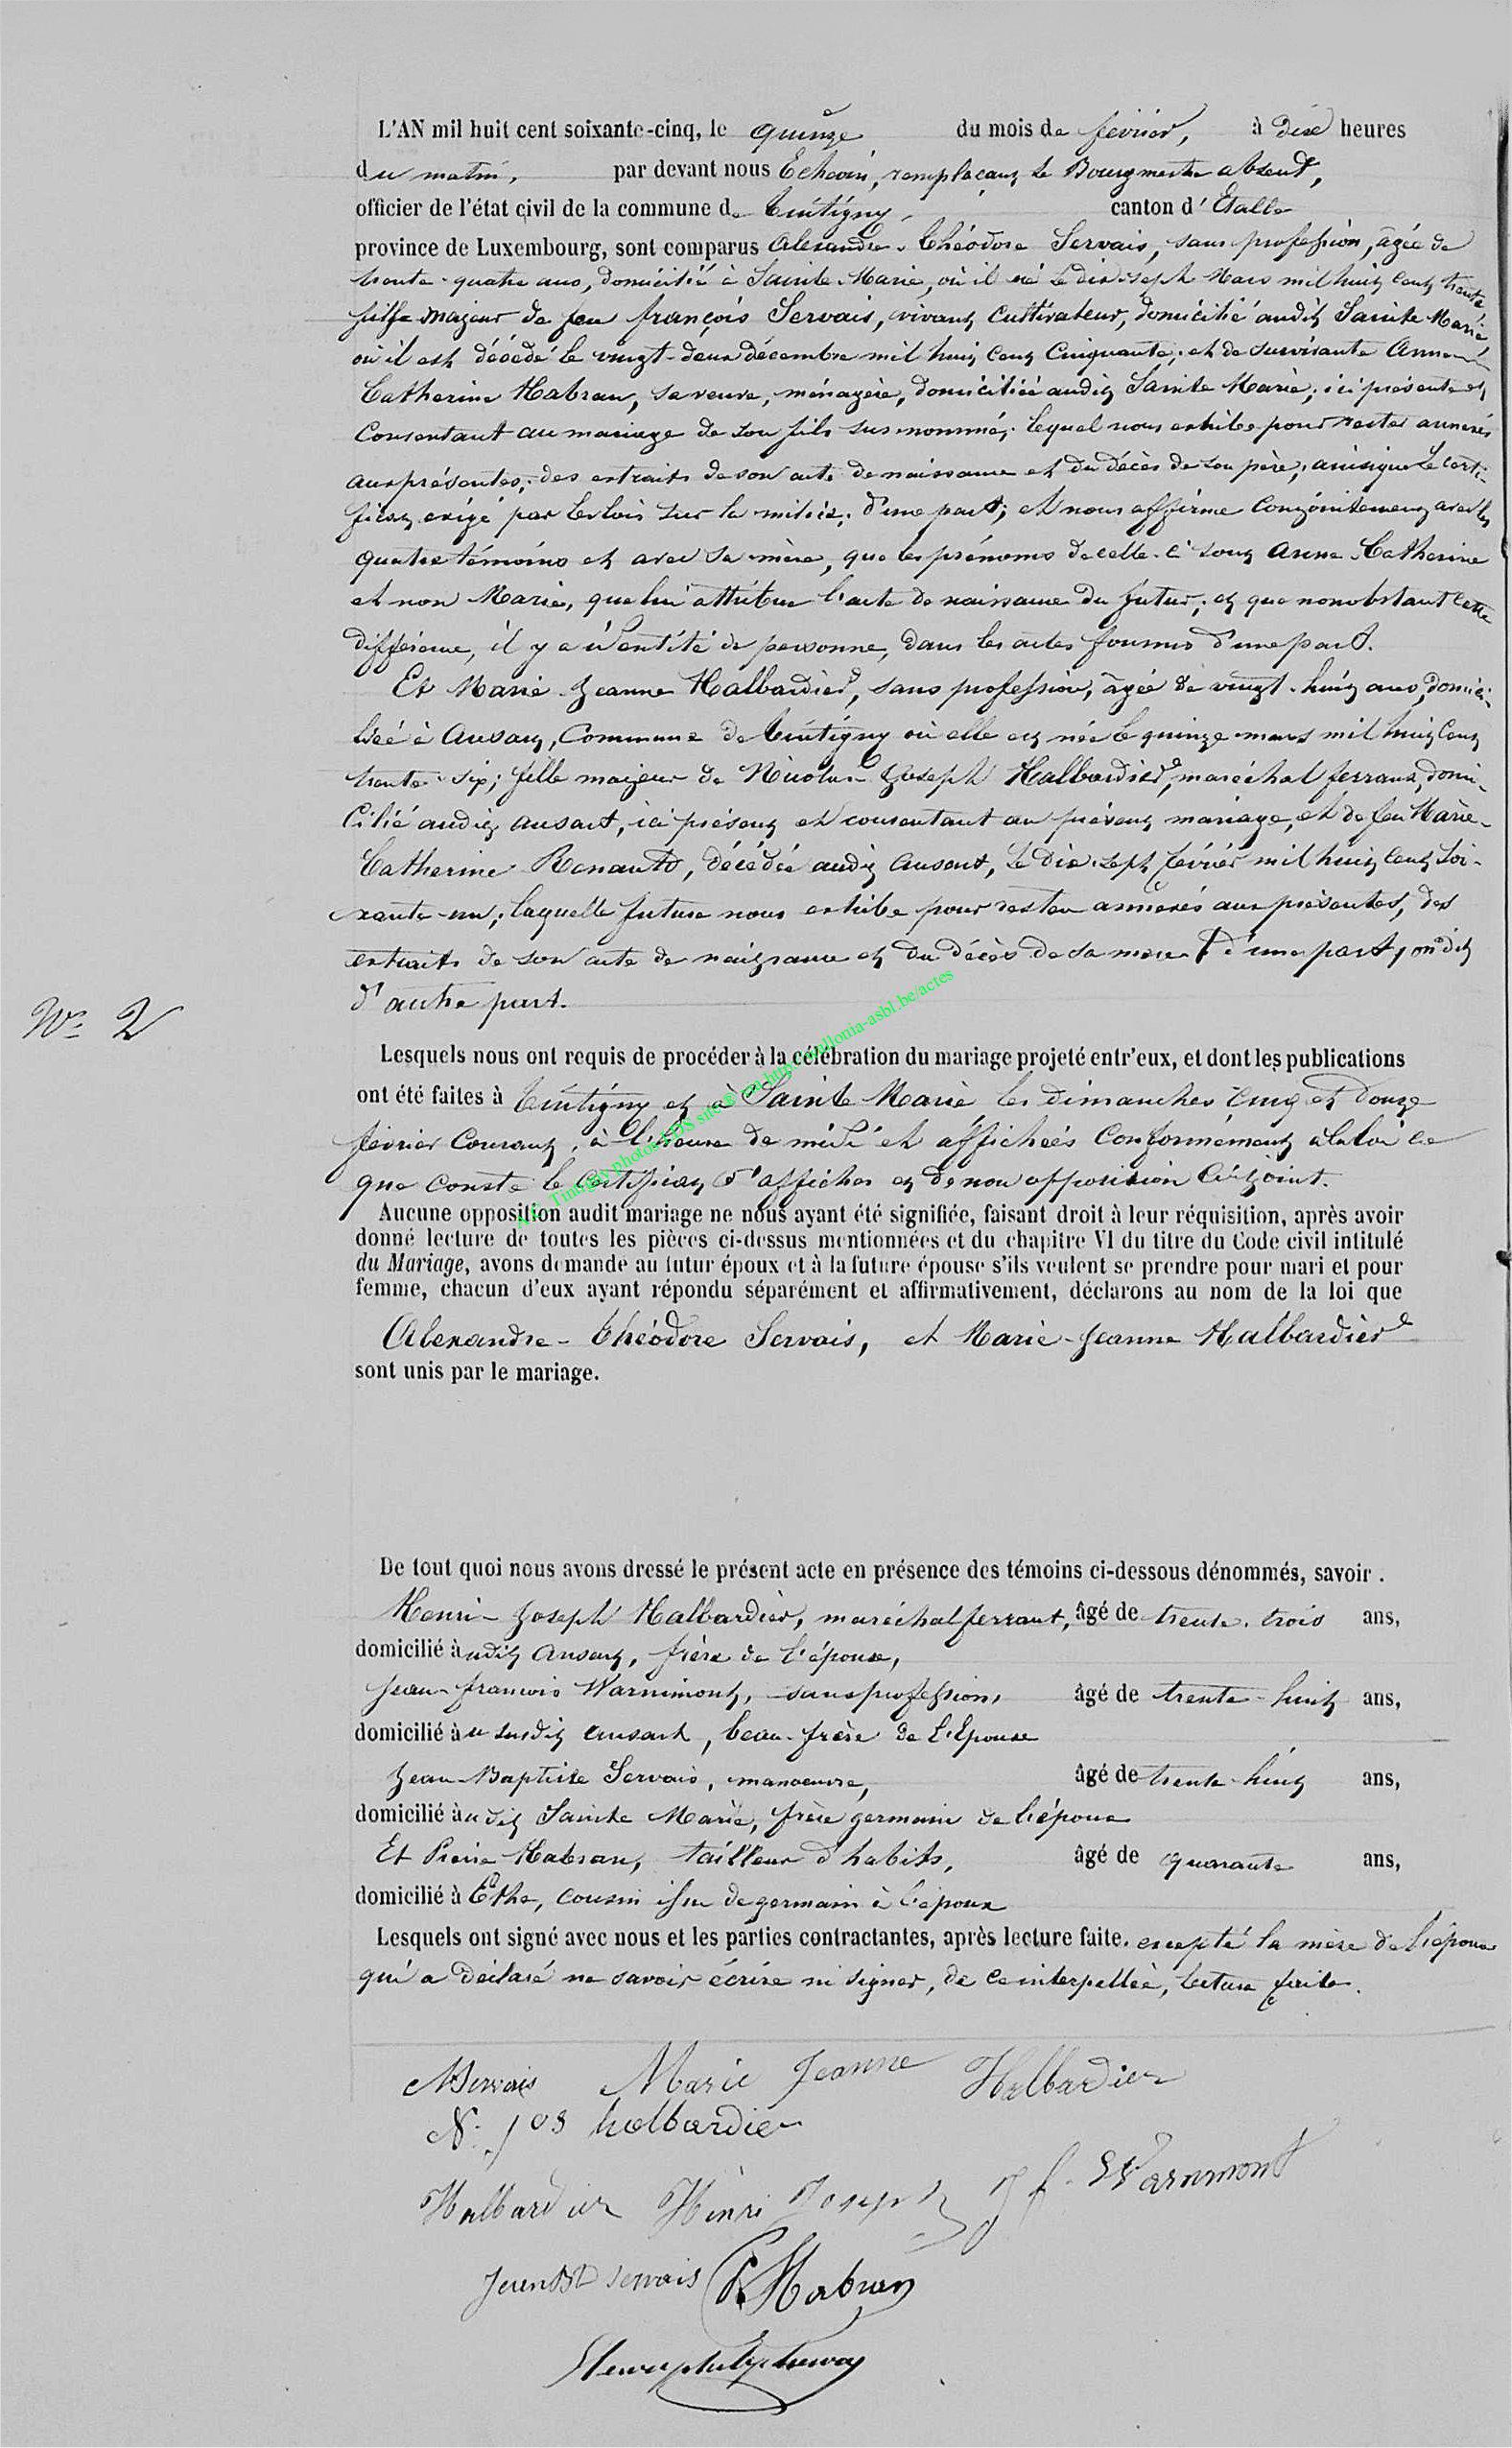 L'AN mil huit cent soixante-cinq, le quinze du mois de février, à dix heures
du matin, par devant nous Echevin, remplaçant le Bourgmestre absent,
officier de l'état civil de la commune de Tintigny, canton d'Etalle
province de Luxembourg, sont comparus Alexandre-Théodore Servais, sans profession, âgée de
trente-quatre ans, domicilié à Sainte-Marie, où il né le dix-sept Mars mil huit cent trente
fils majeur de feu françois Servais, vivant Cultivateur, domicilié audit Sainte Marie,
où il est décédé le vingt-deux décembre mil huit cent Cinquante; et de survivante Anne
Catherine Habran, sa veuve, ménagère, domiciliée audit Sainte Marie; ici présente et
Consentant au mariage de son fils susnommé; lequel nous exhibe pour rester annexés
aux présentes, des extraits de son acte de naissance et du décès de son père, ainsi que le certi-
ficat exigé par les lois sur la milice, d'une part; et nous affirme Conjointement avec les
quatre témoins et avec sa mère, que les prénoms de celle-ci sont Anne-Catherine
et non Marie, que lui attribue l'acte de naissance du futur; et que nonobstant cette
différence, il y a identité de personne, dans les actes fournis d'une part.
Et Marie-Jeanne Halbardier, sans profession, âgée de vingt-huit ans, domici-
liée à Ansart, Commune de Tintigny où elle est née le quinze mars mil huit cent
trente-six; fille majeur de Nicolas-Joseph Halbardier, maréchal ferrant, domi-
Cilié audit Ansart, ici présent et consentant au présent mariage, et de feu Marie-
Catherine Renauld, décédée audit Ansart, le dix-sept février mil huit cent soi-
xante-un; laquelle future nous exhibe pour rester annexés aux présentes, des
extraits de son acte de naissance et du décès de sa mère d'une part, on dit
d'autre part.
N° 2
Lesquels nous ont requis de procéder à la célébration du mariage projeté entr'eux, et dont les publications
ont été faites à Tintigny et à Sainte Marie les dimanches cinq et douze
février Courant, à l'heure de midi et affichées Conformément à la loi ce
que conste le Certificat d'affiches et de non opposition Ci-joint.
Aucune opposition audit mariage ne nous ayant été signifiée, faisant droit à leur réquisition, après avoir
donné lecture de toutes les pièces ci-dessus mentionnées et du chapitre VI du titre du Code civil intitulé
du Mariage, avons demandé au futur époux et à la future épouse s'ils veulent se prendre pour mari et pour
femme, chacun d'eux ayant répondu séparément et affirmativement, déclarons au nom de la loi que
Alexandre-Théodore Servais, et Marie-Jeanne Halbardier
sont unis par le mariage.
De tout quoi nous avons dressé le présent acte en présence des témoins ci-dessous dénommés, savoir.
Henri-Joseph Halbardier, maréchal ferrant, âgé de trente-trois ans,
domicilié audit Ansart, frère de l'épouse,
Jean-francois Warnimont, sans profession, âgé de trente-huit ans,
domicilié au susdit Ansart, beau-frère de l'Epouse
Jean-Baptiste Servais, manoeuvre, âgé de trente-huit ans,
domicilié audit Sainte Marie, frère germain de l'époux
Et Pierre Habran, tailleur d'habits, âgé de quarante ans,
domicilié à Ethe, cousin issu de germain à l'époux
Lesquels ont signé avec nous et les parties contractantes, après lecture faite. excepté la mère de l'époux
qui a déclaré ne savoir écrire ni signer, de ce interpellée, lecture faite.
Servais Marie Jeanne Halbardier
N. Jos halbardier
Halbardier Henri Joseph J f. Warnimont
Jean Bt servais P. Habran
A.C. Tintigny photos LDS site wallonia-asbl.be/actes